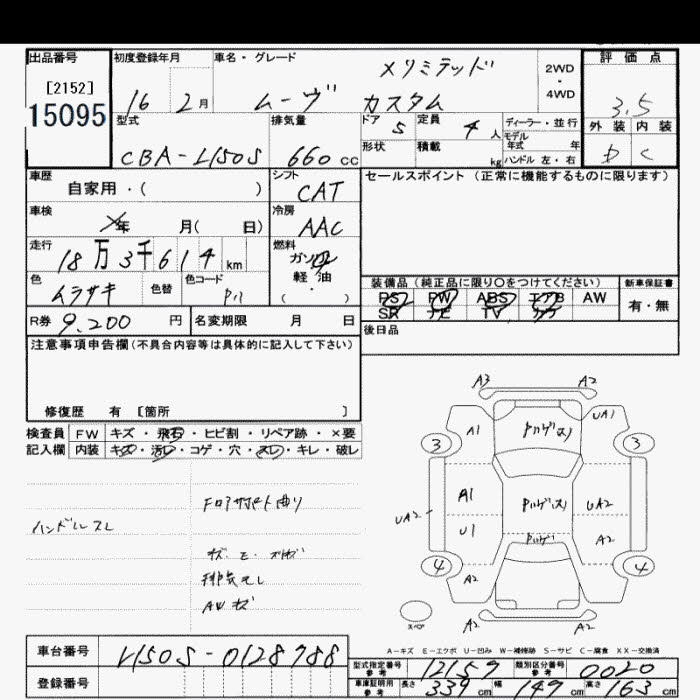 出品番号 初度登録年月 車名・グレード 評価点
[2152] 15095
16 2月 ムーヴ カスタム メリミテッド 2WD・4WD 3.5
型式 排気量 ドア 定員 ディーラー・並行 外装 内装
CBA-L150S 660cc 5 4人 モデル年式 年 D C
形状 積載 kg ハンドル 左・右
車歴 シフト セールスポイント(正常に機能するものに限ります)
自家用・( ) CAT
車検 冷房
年 月( 日) AAC
走行 燃料
18万3千614km ガソリン
軽油
( )
色 色替 色コード
ムラサキ
装備品(純正品に限り○をつけてください) 新車保証書
PS PW ABS エアB AW 有・無
SR ナビ TV カワ
R券 9,200円 名変期限 月 日
後日品
注意事項申告欄(不具合内容等は具体的に記入して下さい)
修復歴 有 [箇所 ]
検査員 FW キズ・飛石・ヒビ割・リペア跡・×要
記入欄 内装 キズ・汚レ・コゲ・穴・スレ・キレ・破レ
ハンドルスレ
Fロアサポート曲り
排気モレ
AWキズ
A3 A2
A1 UA1
3 3
A1 UA2
UA2 U1 A2
4 A2 4
A2 A2
スペア
A-キズ E-エクボ U-凹み W-補修跡 S-サビ C-腐食 XX-交換済
車台番号 L150S-0128788
登録番号
型式指定番号 参考 12157 類別区分番号 参考 0020
車庫証明用 参考 長さ 339cm 幅 147cm 高さ 163cm